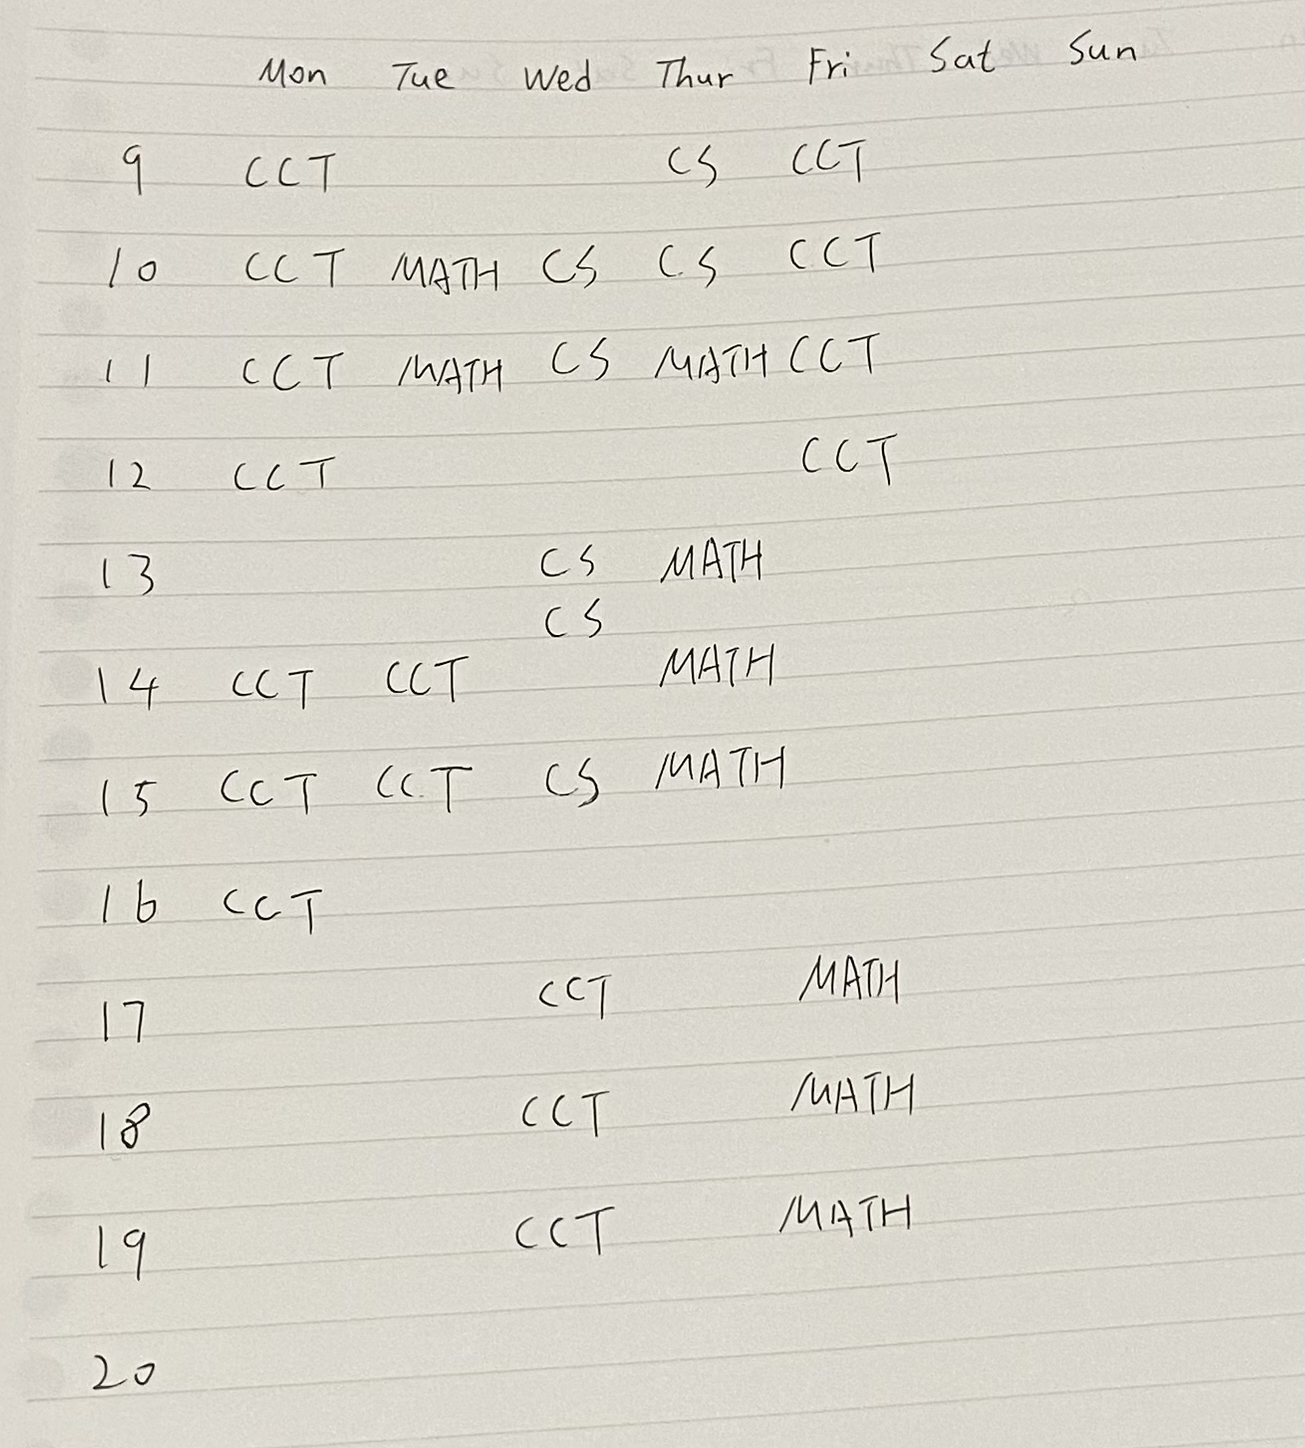 Mon Tue Wed Thur Fri Sat Sun
9 CCT CS CCT
10 CCT MATH CS CS CCT
11 CCT MATH CS MATH CCT
12 CCT CCT
13 CS MATH
CS
14 CCT CCT MATH
15 CCT CCT CS MATH
16 CCT
17 CCT MATH
18 CCT MATH
19 CCT MATH
20